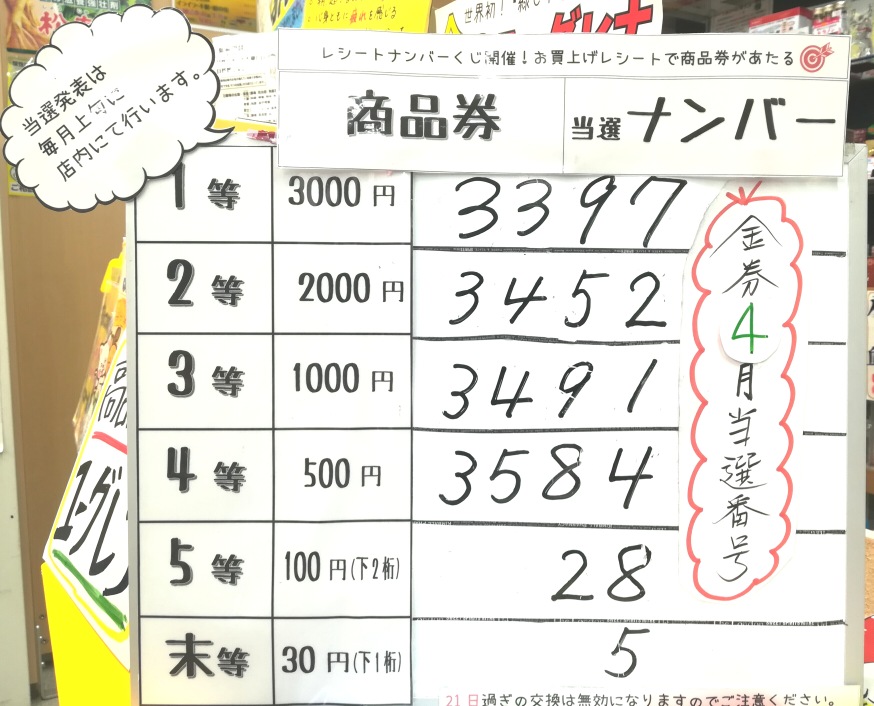 当選発表は
毎月上旬に
店内にて行います。
レシートナンバーくじ開催!お買上げレシートで商品券があたる
商品券 当選ナンバー
1等 3000円 3397
2等 2000円 3452
3等 1000円 3491
4等 500円 3584
5等 100円(下2桁) 28
末等 30円(下1桁) 5
金券4月当選番号
21日過ぎの交換は無効になりますのでご注意ください。
世界初!